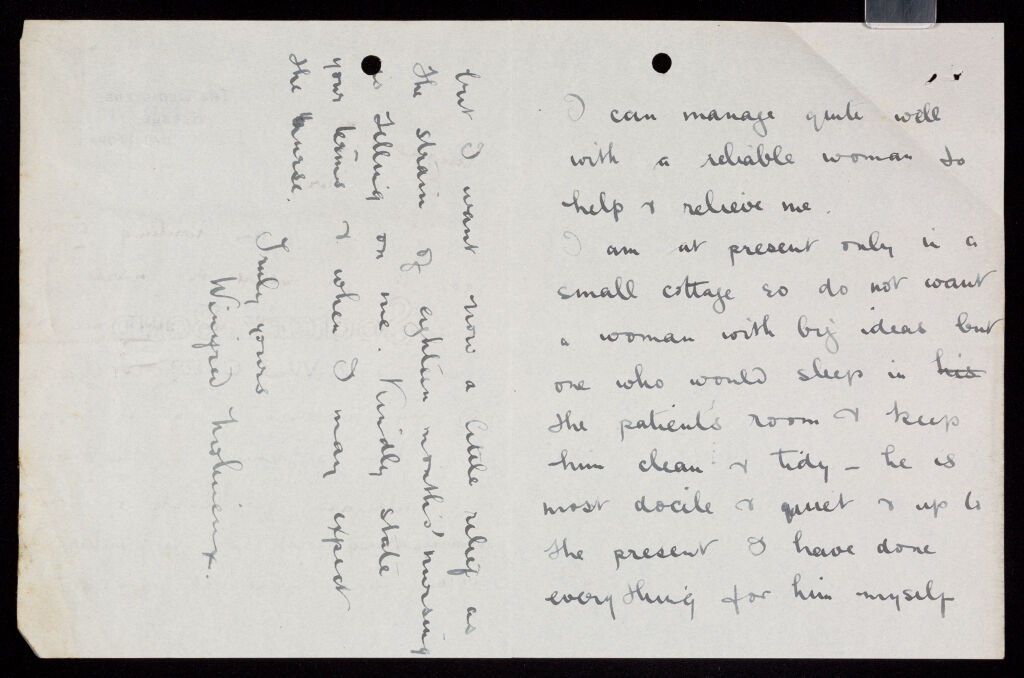 I can manage quite well
with a reliable woman to
help & relieve me.
I am at present only in a
small cottage so do not want
a woman with big ideas but
one who would sleep in his
the patient's room & keep
him clean & tidy – he is
most docile & quiet & up to
the present I have done
everything for him myself
but I want now a little relief as
the strain of eighteen months' nursing
is telling on me. Kindly state
your terms & when I may expect
the nurse.
Truly yours
Winifred